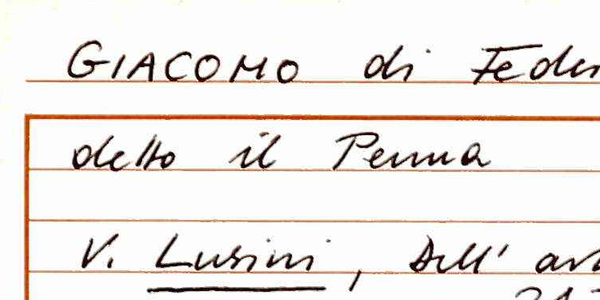 GIACOMO di Feder
detto il Penna
V. Lusini, Dell' art